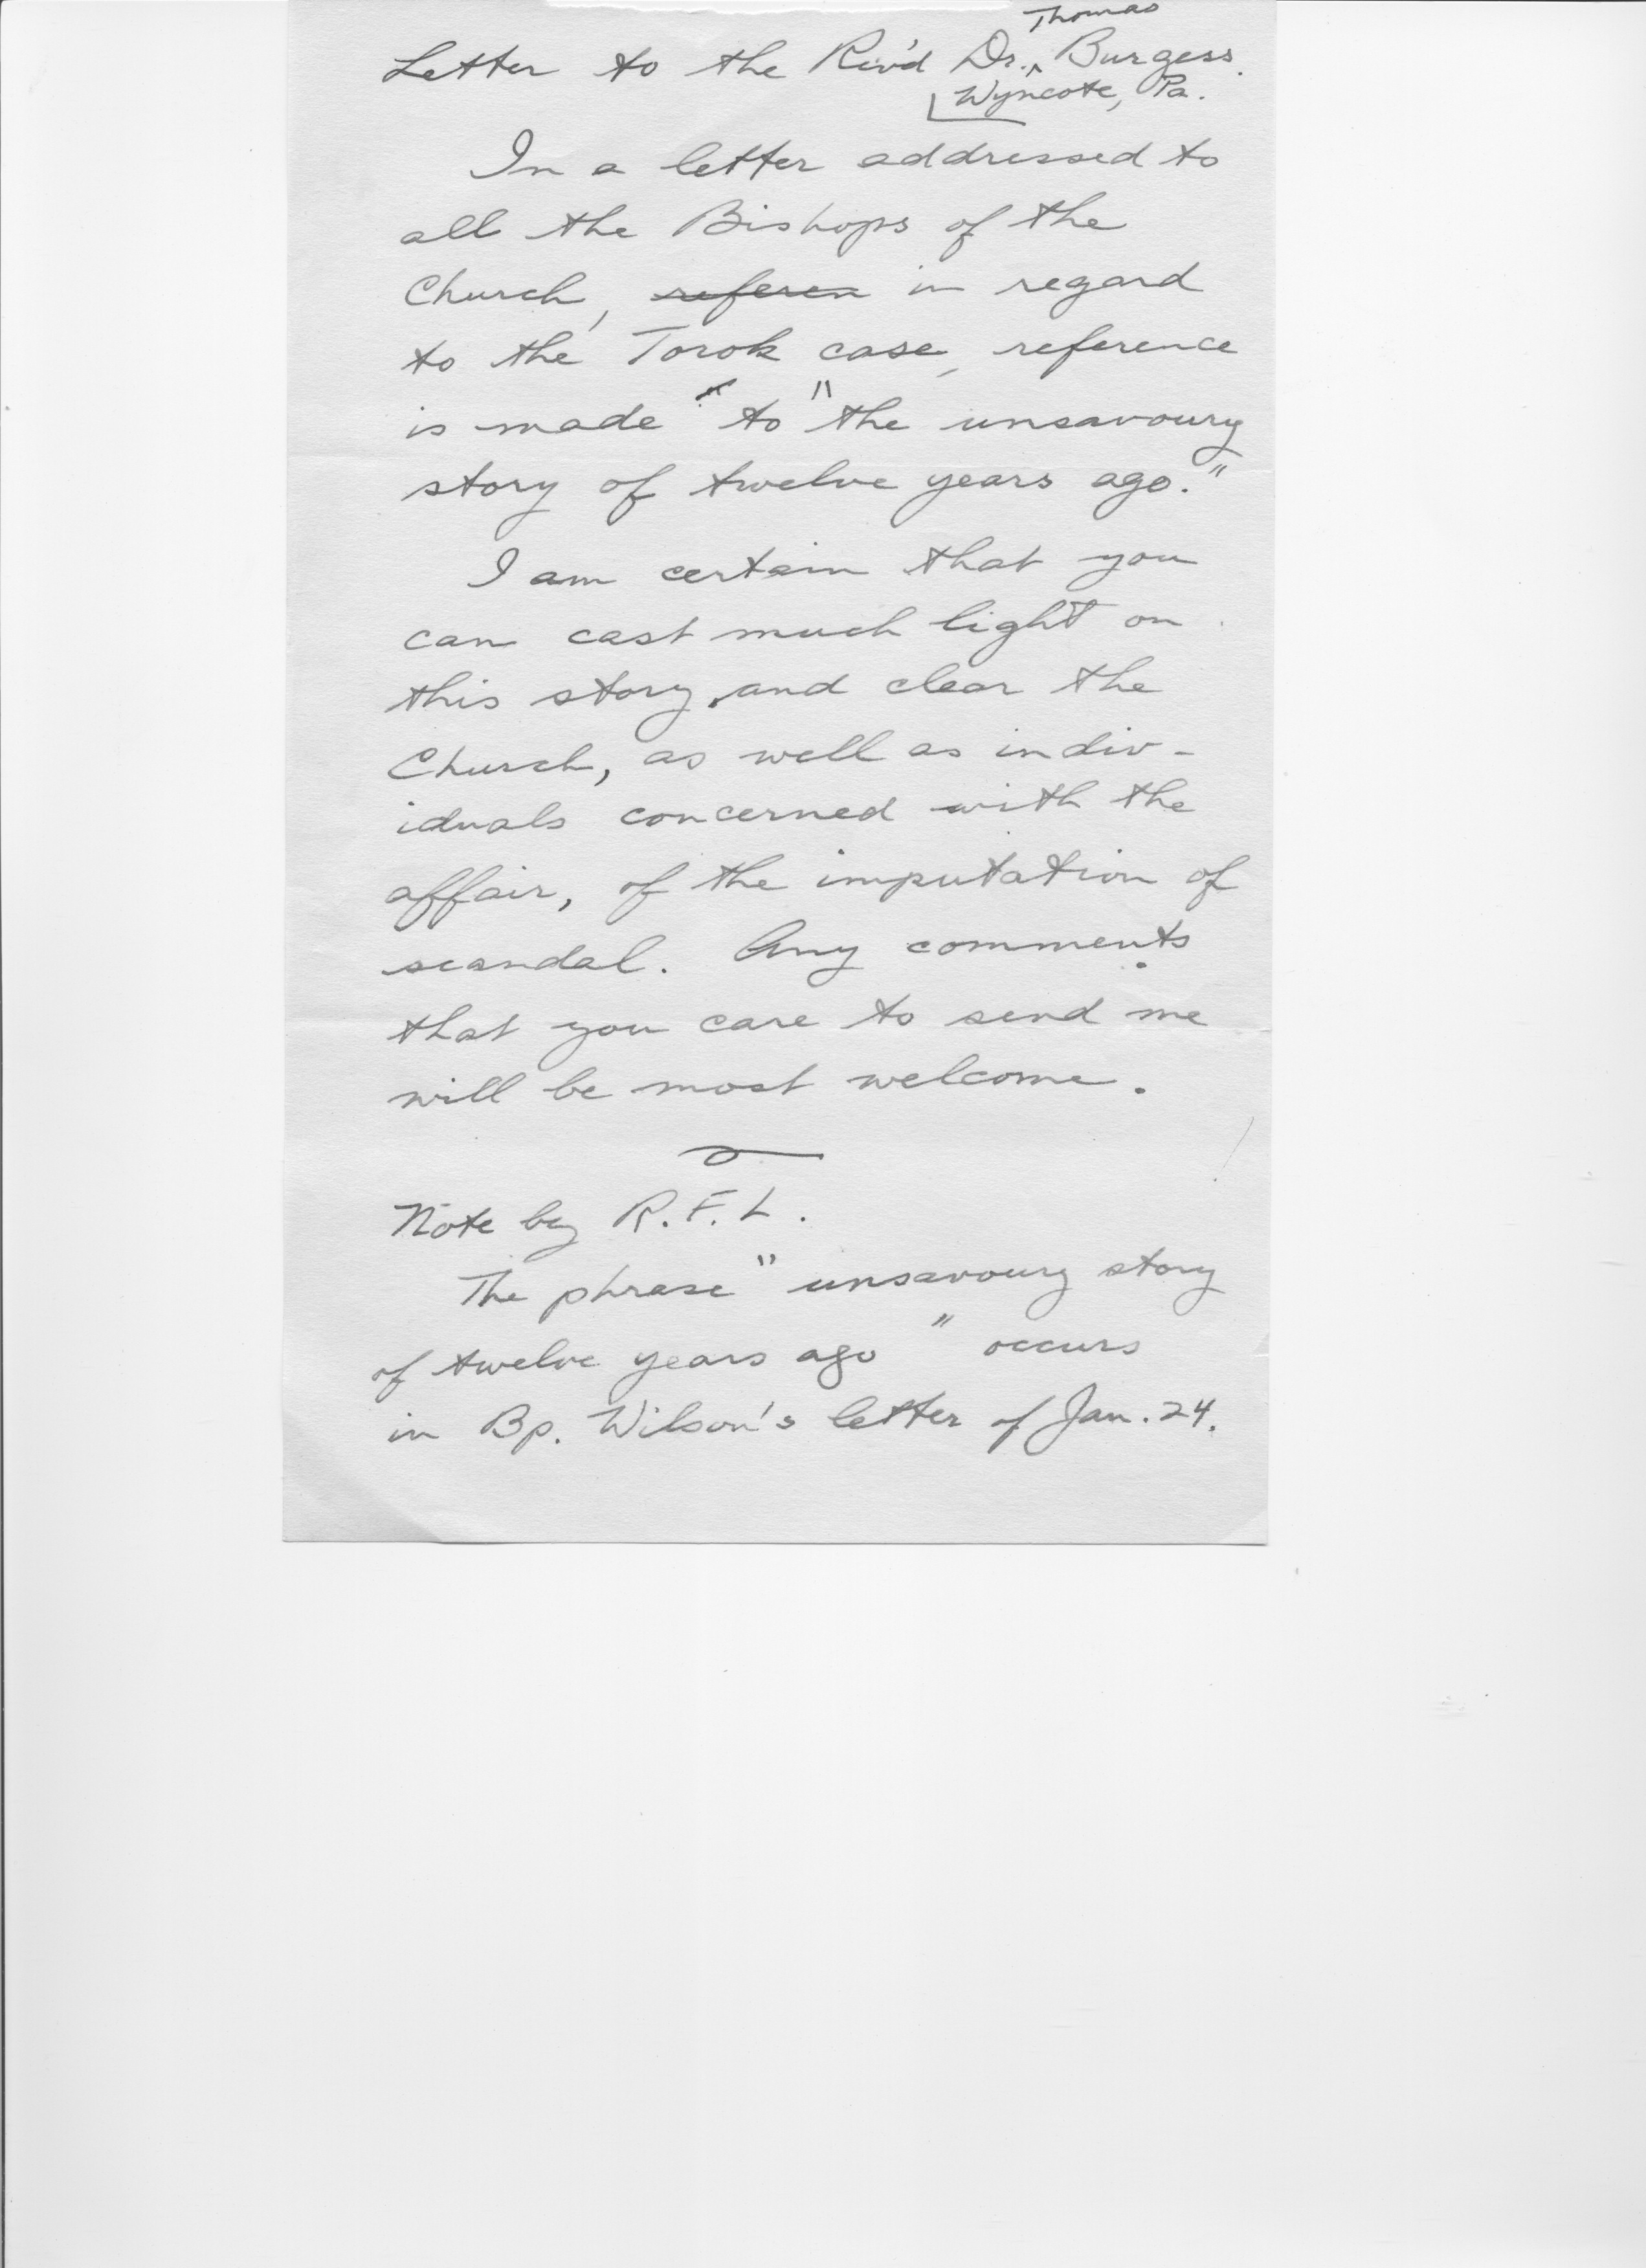 Letter to the Rev'd Dr. ^ Thomas Burgess.
Wyncote, Pa.
In a letter addressed to
all the Bishops of the
Church, referen in regard
to the Torok case, reference
is made to "the unsavoury
story of twelve years ago."
I am certain that you
can cast much light on
this story, and clear the
Church, as well as indiv-
iduals concerned with the
affair, of the imputation of
scandal. Any comments
that you care to send me
will be most welcome.
Note by R.F.L.
The phrase "unsavoury story
of twelve years ago" occurs
in Bp. Wilson's letter of Jan. 24.